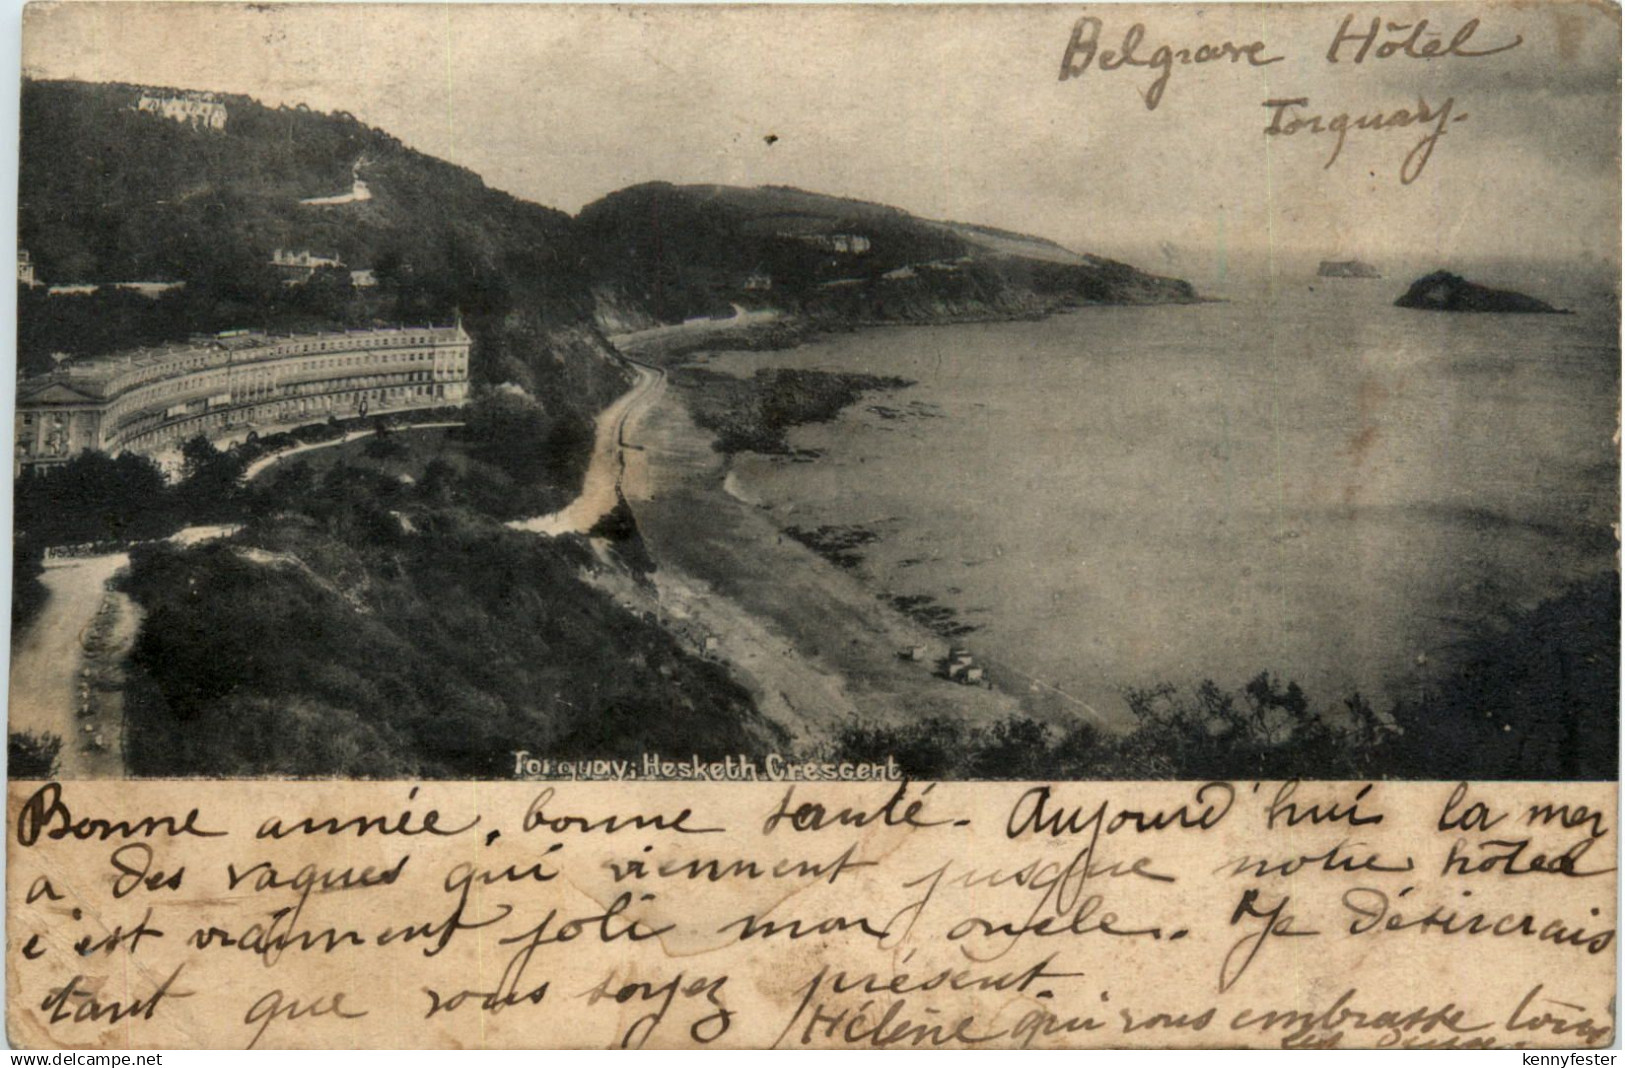 Belgrave Hôtel
Torquay.
Torquay; Hesketh Crescent
Bonne année, bonne santé - Aujourd'hui la mer
a des vagues qui viennent jusque notre hôtel
c'est vraiment joli mon oncle. Je désirerais
tant que vous soyez présent.
Hélène qui vous embrasse tous
les deux.
delcampe.net
kennyfester